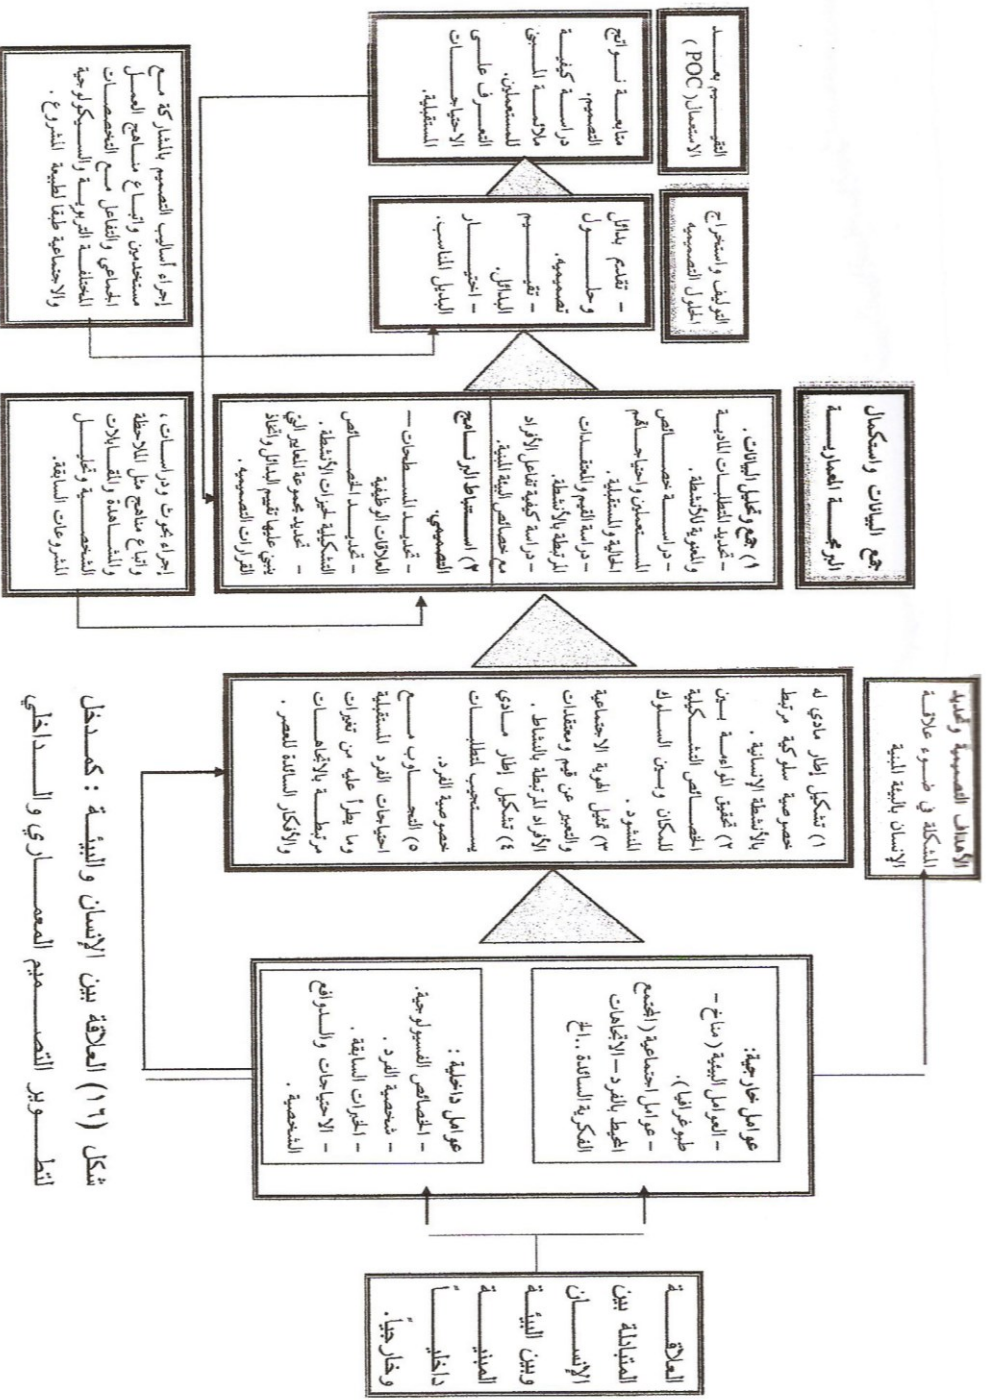 العلاقـــــة
المتبادلة بين
الإنســـــان
وبين البيئـة
المبنيـــــة
داخليـــــاً
وخارجياً.
عوامل خارجية:
- العوامل البيئية ( مناخ –
طبوغرافيا ).
- عوامل اجتماعية ( المجتمع
المحيط بالفرد – الاتجاهات
الفكرية السائدة ..الخ
عوامل داخلية :
- الخصائص الفسيولوجية.
- شخصية الفرد .
- الخبرات السابقة .
- الاحتياجات والـدوافع
الشخصية .
الأهداف التصميمية وتحديد
المشكلة في ضوء علاقـــة
الإنسان بالبيئة المبنية
١) تشكيل إطار مادي له
خصوصية سلوكية مرتبط
بالأنشطة الإنسانية .
٢) تحقيق المواءمـة بـين
الخصـائص التشـكيلية
للمكان وبـين السـلوك
المنشود .
٣) تمثيل الهوية الاجتماعية
والتعبير عن قيم ومعتقدات
الأفراد المرتبطة بالنشاط .
٤) تشكيل إطار مـادي
يسـتجيب لمتطلبـات
خصوصية الفرد.
٥) التجـاوب مـــع
احتياجات الفرد المستقبلية
وما يطرأ عليه من تغيرات
مرتبطـــة بالاتجاهـــات
والأفكار السائدة للعصر .
جمع البيانات واستكمال
البرمجـــة المعماريـــة
١) جمع وتحليل البيانات .
- تحديد المتطلبـات المادية
والمعنوية للأنشطة .
- دراســـة خصـــائص
المستعملين واحتياجـاتهم
الحالية والمستقبلية .
- دراسة القيم والمعتقـدات
المرتبطة بالأنشطة.
- دراسة كيفية تفاعل الأفراد
مع خصائص البيئة المبنية.
٢) اسـتنباط البرنـامج
التصميمي.
- تحديـد المسـطحات –
العلاقات الوظيفية
- تحديـد الخصـائص
التشكيلية لحيزات الأنشطة .
- تحديد مجموعة المعايير التي
ينبني عليها تقييم البدائل واتخاذ
القرارات التصميميه .
إجراء بحوث ودراسـات ،
واتباع مناهج مثل الملاحظة
والمشـاهدة والمقـابلات
الشخصـية وتحليـــل
المشروعات السابقة.
التوليف واستخراج
الحلول التصميميه
- تقديم بدائل
وحلـــول
تصميميه.
- تقيـــيم
البدائل.
- اختيـــار
البديل المناسب.
إجراء أساليب التصميم بالمشاركة مـع
مستخدمين واتبـاع منـاهج العمـل
الجماعي والتفاعل مـع التخصصـات
المختلفـة التربويـة والسـيكولوجية
والاجتماعية طبقا لطبيعة المشروع .
التقيـــيم بعـــد
الاستعمال( POC )
متابعـة نـواتج
التصميم.
دراسـة كيفيـة
ملائمـة المبـنى
للمستعملين.
التعـرف علـى
الاحتياجـــات
المستقبلية.
شكل (١٦) العلاقة بين الإنسان والبيئـة : كمـدخل
لتطـــوير التصـــميم المعمـــاري والـــداخلي